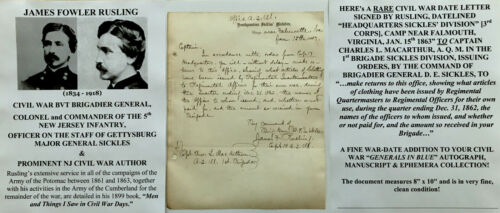 JAMES FOWLER RUSLING
(1834 - 1918)
CIVIL WAR BVT BRIGADIER GENERAL,
COLONEL and COMMANDER OF THE 5th
NEW JERSEY INFANTRY,
OFFICER ON THE STAFF OF GETTYSBURG
MAJOR GENERAL SICKLES
&
PROMINENT NJ CIVIL WAR AUTHOR
Rusling's extensive service in all of the campaigns of the
Army of the Potomac between 1861 and 1863, together
with his activities in the Army of the Cumberland for the
remainder of the war, are detailed in his 1899 book, "Men
and Things I Saw in Civil War Days."
Headquarters Sickles' Division,
Captain
In accordance with orders from
Headquarters, you will without delay make
to this office, showing what articles of
issued by Regimental Quartermasters
to Regimental Officers for their own use, during
the quarter ending Dec. 31, 1862, the names of
the officers to whom issued, and whether or not
paid for, and the amount so received in your
Brigade.
By command of
HERE's A RARE CIVIL WAR DATE LETTER
SIGNED BY RUSLING, DATELINED
"HEADQUARTERS SICKLES' DIVISION" [3rd
CORPS], CAMP NEAR FALMOUTH,
VIRGINIA, JAN. 15th 1863" TO CAPTAIN
CHARLES L. MACARTHUR, A. Q. M. IN THE
1st BRIGADE SICKLES DIVISION, ISSUING
ORDERS, BY THE COMMAND OF
BRIGADIER GENERAL D. E. SICKLES, TO
"…make returns to this office, showing what articles
of clothing have been issued by Regimental
Quartermasters to Regimental Officers for their own
use, during the quarter ending Dec. 31, 1862, the
names of the officers to whom issued, and whether
or not paid for, and the amount so received in your
Brigade…"
A FINE WAR-DATE ADDITION TO YOUR CIVIL
WAR "GENERALS IN BLUE" AUTOGRAPH,
MANUSCRIPT & EPHEMERA COLLECTION!
The document measures 8" x 10" and is in very fine,
clean condition!